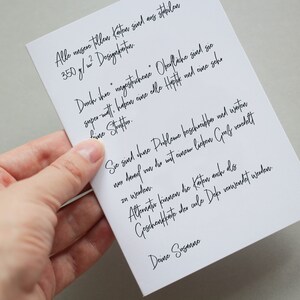 Alle unsere tollen Karten sind aus stabilen
350 g/m² Designkarton.
Durch ihre "ungestrichene" Oberfläche sind sie
super matt, haben eine edle Haptik und eine sehr
feine Struktur.
Sie sind ohne Probleme beschreibbar und warten
nur darauf von dir mit einem lieben Gruß versehen
zu werden.
Alternativ können die Karten auch als
Geschenkkarte oder coole Deko verwendet werden.
Deine Susanne